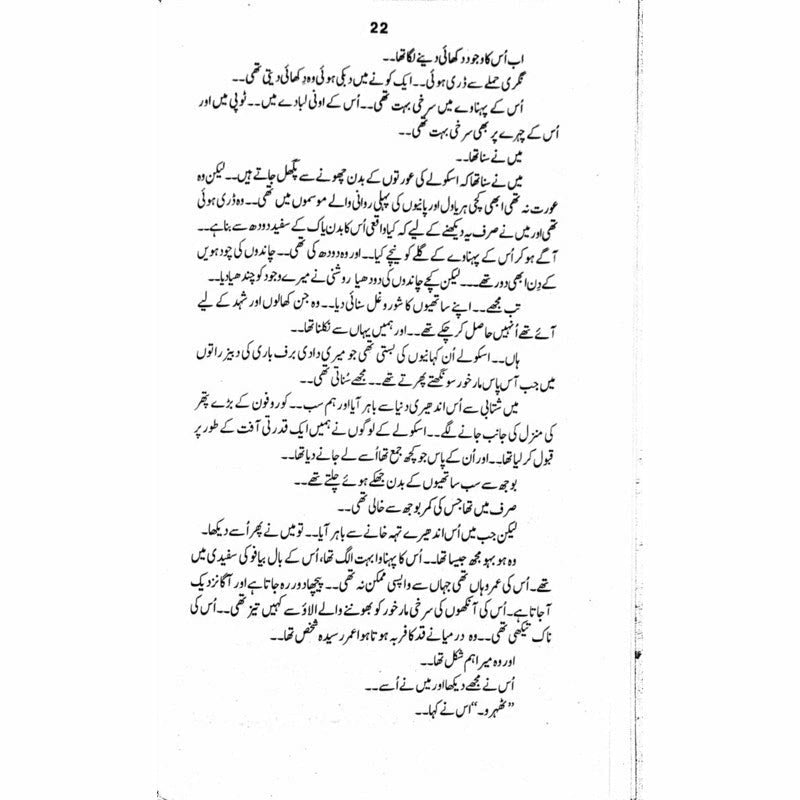 22
اب اُس کا وجود دکھائی دینے لگا تھا۔۔
نگری حملے سے ڈری ہوئی۔۔ ایک کونے میں دبکی ہوئی وہ دکھائی دیتی تھی۔۔
اُس کے پہناوے میں سرخی بہت تھی۔۔ اُس کے اونی لبادے میں۔۔ ٹوپی میں اور
اُس کے چہرے پر بھی سرخی بہت تھی۔۔
میں نے سنا تھا۔۔
میں نے سنا تھا کہ اسکولے کی عورتوں کے بدن چھونے سے پگھل جاتے ہیں۔۔ لیکن وہ
عورت نہ تھی ابھی کچی ہریاول اور پانیوں کی پہلی روانی والے موسموں میں تھی۔۔ وہ ڈری ہوئی
تھی اور میں نے صرف یہ دیکھنے کے لیے کہ کیا واقعی اُس کا بدن یاک کے سفید دودھ سے بنا ہے۔۔
آگے ہو کر اُس کے پہناوے کے گلے کو نیچے کیا۔۔ اور وہ دودھ کی تھی۔۔ چاندوں کی چودہویں
کے دِن ابھی دور تھے۔۔۔ لیکن کچے چاندوں کی دودھیا روشنی نے میرے وجود کو چندھیا دیا۔۔
تب مجھے۔۔ اپنے ساتھیوں کا شور و غل سنائی دیا۔۔ وہ جن کھالوں اور شہد کے لیے
آئے تھے اُنہیں حاصل کر چکے تھے۔۔ اور ہمیں یہاں سے نکلنا تھا۔۔
ہاں۔۔ اسکولے اُن کہانیوں کی بستی تھی جو میری دادی برف باری کی دبیز راتوں
میں جب آس پاس مارخور سونگھتے پھرتے تھے۔۔ مجھے سُناتی تھی۔۔
میں شتابی سے اُس اندھیری دنیا سے باہر آیا اور ہم سب۔۔ کوروفون کے بڑے پتھر
کی منزل کی جانب جانے لگے۔۔ اسکولے کے لوگوں نے ہمیں ایک قدرتی آفت کے طور پر
قبول کر لیا تھا۔۔ اور اُن کے پاس جو کچھ جمع تھا اُسے لے جانے دیا تھا۔۔
بوجھ سے سب ساتھیوں کے بدن جھکے ہوئے چلتے تھے۔۔
صرف میں تھا جس کی کمر بوجھ سے خالی تھی۔۔
لیکن جب میں اُس اندھیرے تہہ خانے سے باہر آیا۔۔ تو میں نے پھر اُسے دیکھا۔
وہ ہو بہو مجھ جیسا تھا۔۔ اُس کا پہناوا بہت الگ تھا، اُس کے بال بیافو کی سفیدی میں
تھے۔ اُس کی عمر وہاں تھی جہاں سے واپسی ممکن نہ تھی۔۔ پیچھا دور رہ جاتا ہے اور آگا نزدیک
آ جاتا ہے۔ اُس کی آنکھوں کی سرخی مارخور کو بھوننے والے الاؤ سے کہیں تیز تھی۔۔ اُس کی
ناک تیکھی تھی۔۔ وہ درمیانے قد کا فربہ ہوتا ہوا عمر رسیدہ شخص تھا۔۔
اور وہ میرا ہم شکل تھا۔۔
اُس نے مجھے دیکھا اور میں نے اُسے۔۔
”ٹھہرو۔“ اس نے کہا۔۔